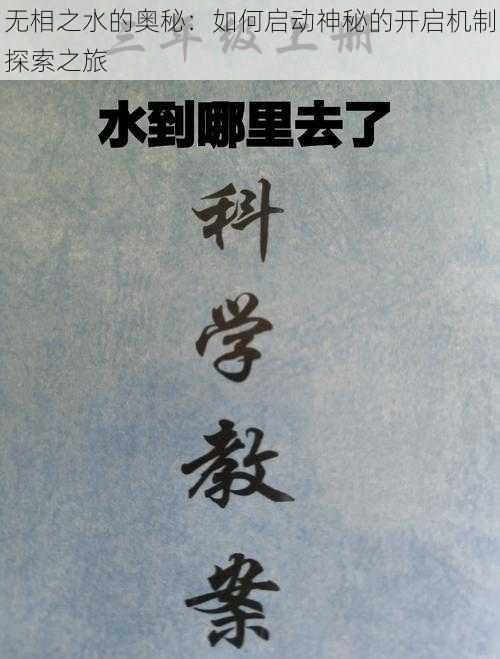 无相之水的奥秘：如何启动神秘的开启机制
探索之旅
三年级上册
水到哪里去了
科
学
教
案